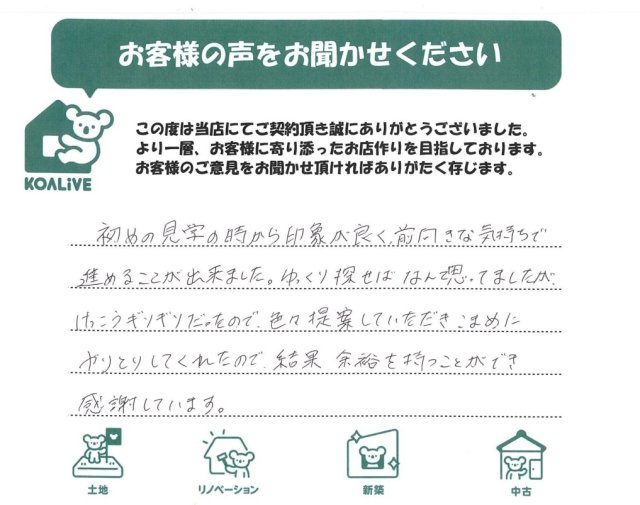 お客様の声をお聞かせください
この度は当店にてご契約頂き誠にありがとうございました。
より一層、お客様に寄り添ったお店作りを目指しております。
お客様のご意見をお聞かせ頂ければありがたく存じます。
KOALIVE
初めの見学の時から印象が良く、前向きな気持ちで
進めることが出来ました。ゆっくり探せばなんて思ってましたが、
けっこうギリギリだったので、色々提案していただき、こまめに
やりとりしてくれたので、結果 余裕を持つことができ
感謝しています。
土地
リノベーション
新築
中古